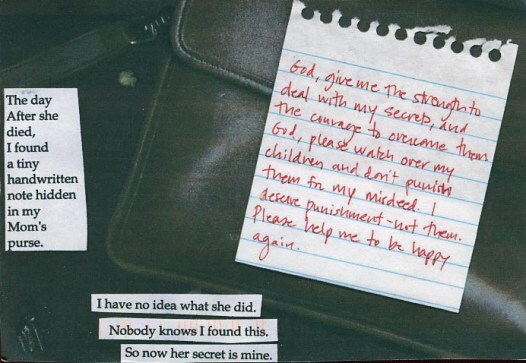 The day
After she
died,
I found
a tiny
handwritten
note hidden
in my
Mom's
purse.
God, give me the strength to
deal with my secrets, and
the courage to overcome them
God, please watch over my
children and don't punish
them for my misdeed. I
deserve punishment-not them.
Please help me to be happy
again.
I have no idea what she did.
Nobody knows I found this.
So now her secret is mine.